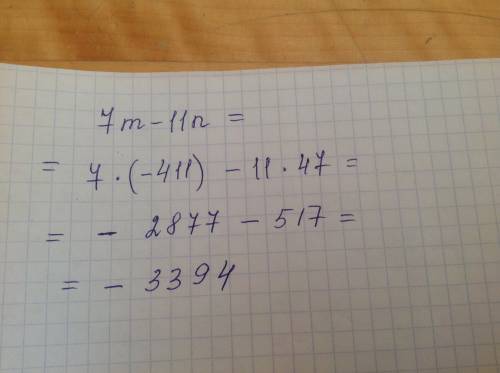 7m - 11n =
= 7 · (-411) - 11 · 47 =
= - 2877 - 517 =
= - 3394